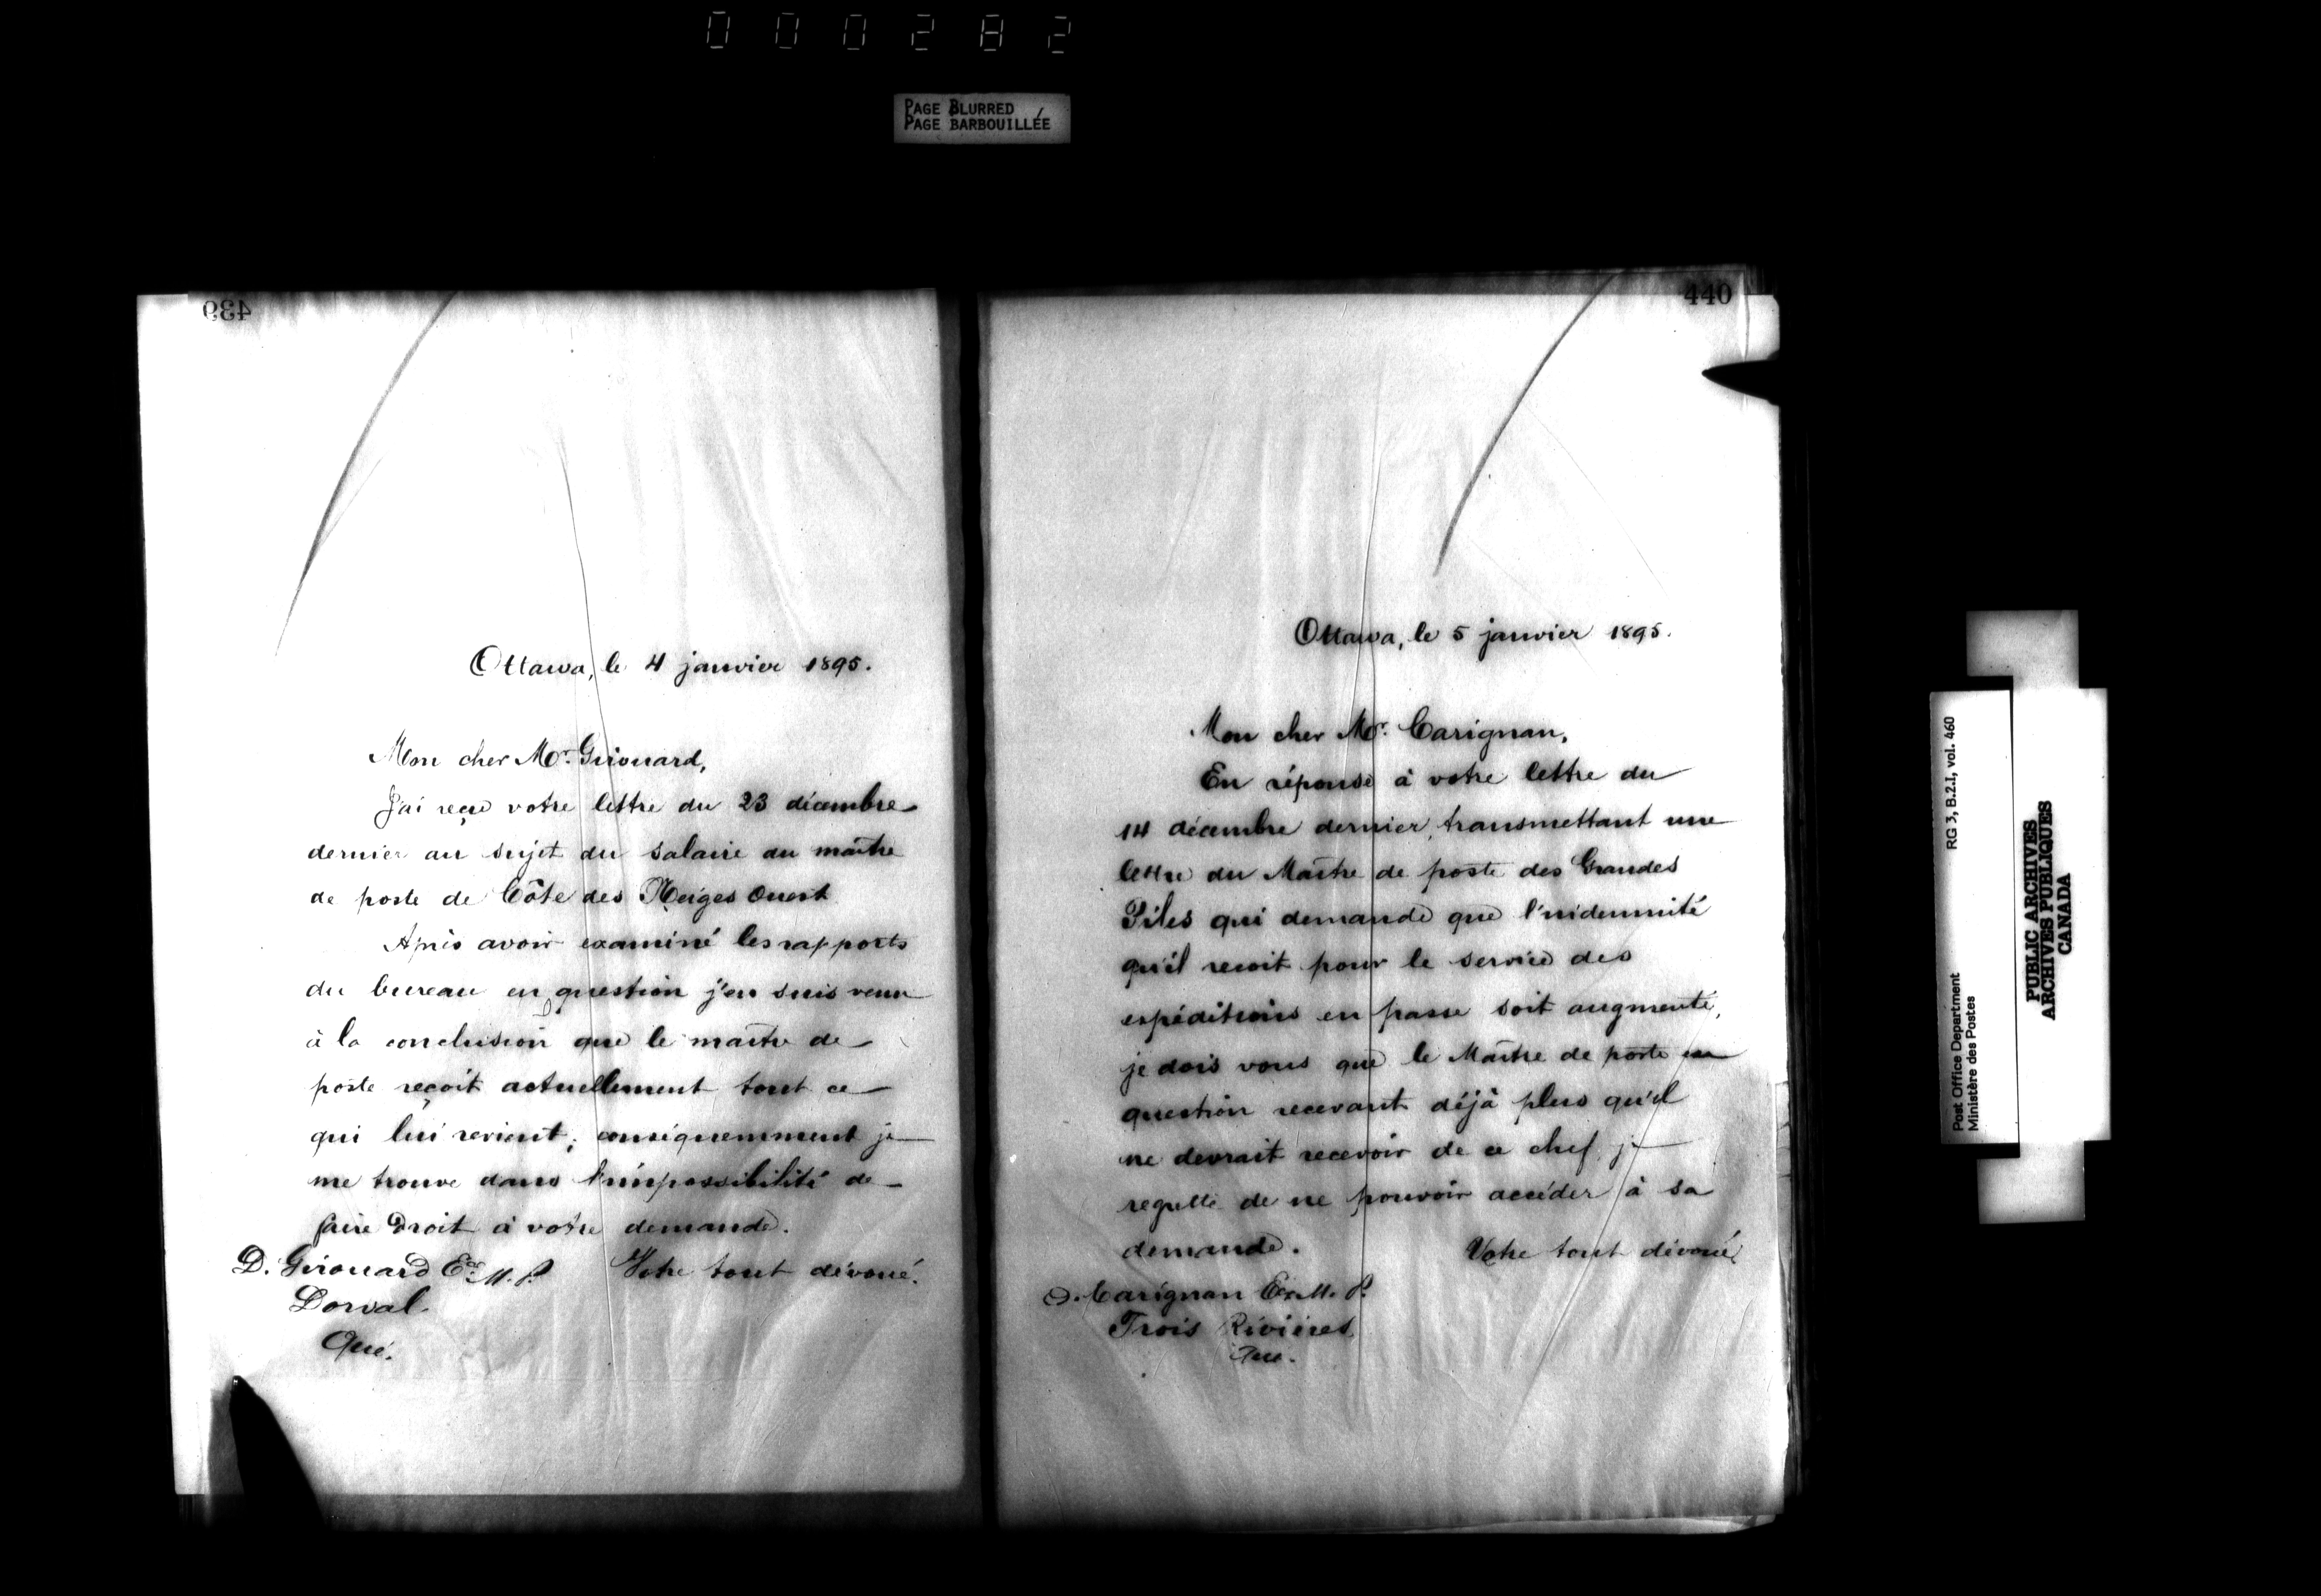 000282
PAGE BLURRED
PAGE BARBOUILLÉE
439
Ottawa, le 4 janvier 1895.
Mon cher Mr. Girouard,
J'ai reçu votre lettre du 23 décembre
dernier au sujet du salaire du maître
de poste de Côte des Neiges Ouest
Après avoir examiné les rapports
du bureau en question j'en suis venu
à la conclusion que le maître de
poste reçoit actuellement tout ce
qui lui revient; conséquemment je
me trouve dans l'impossibilité de
faire droit à votre demande.
Votre tout dévoué.
D. Girouard Ecr. M. P.
Dorval
Qué.
440
Ottawa, le 5 janvier 1895.
Mon cher Mr. Carignan,
En réponse à votre lettre du
14 décembre dernier, transmettant une
lettre du Maître de poste des Grandes
Piles qui demande que l'indemnité
qu'il recoit pour le service des
expéditions en passe soit augmenté,
je dois vous que le Maître de poste en
question recevant déjà plus qu'il
ne devrait recevoir de ce chef, je
regrette de ne pouvoir accéder à sa
demande.
Votre tout dévoué,
O. Carignan Ecr. M. P.
Trois Rivières
Que.
Post Office Department
Ministère des Postes
RG 3, B.2.I, vol. 460
PUBLIC ARCHIVES
ARCHIVES PUBLIQUES
CANADA